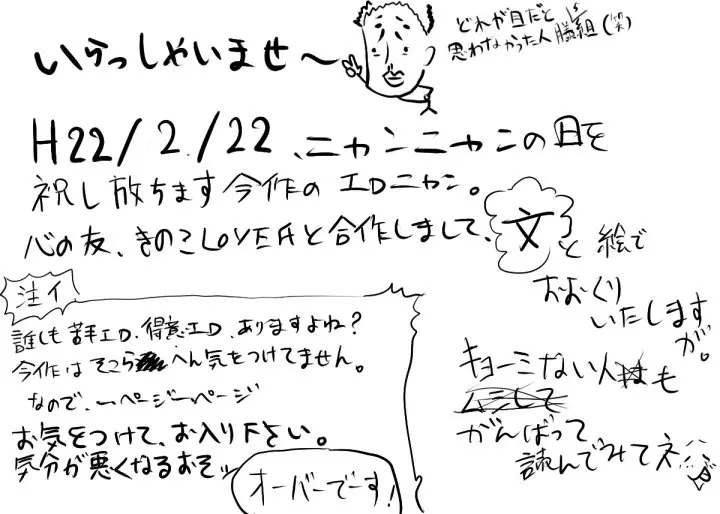 いらっしゃいませ〜
どれが目だと
思わなかった人は勝組(笑)
H22/2/22、ニャンニャンの日を
祝し放ちます今作のエロニャン。
心の友、きのこLOVERと合作しまして、文と絵で
おおくり
いたします
が。
注イ
誰しも苦手エロ、得意エロ、ありますよね?
今作はそこらへん気をつけてません。
なので、一ページ一ページ
お気をつけて、お入り下さい。
気分が悪くなるおそッ
オーバーでーす!
キョーミない人も
がんばって
読んでみてネ